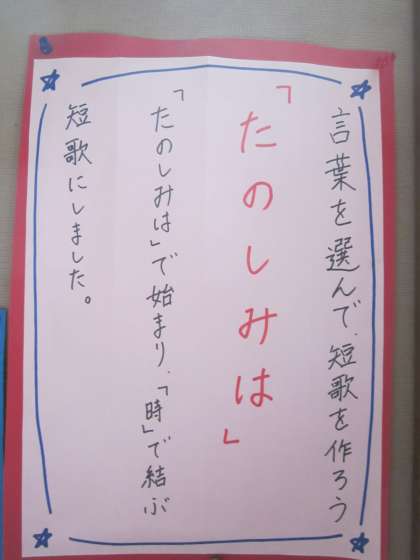 言葉を選んで、短歌を作ろう
「たのしみは」
「たのしみは」で始まり、「時」で結ぶ
短歌にしました。